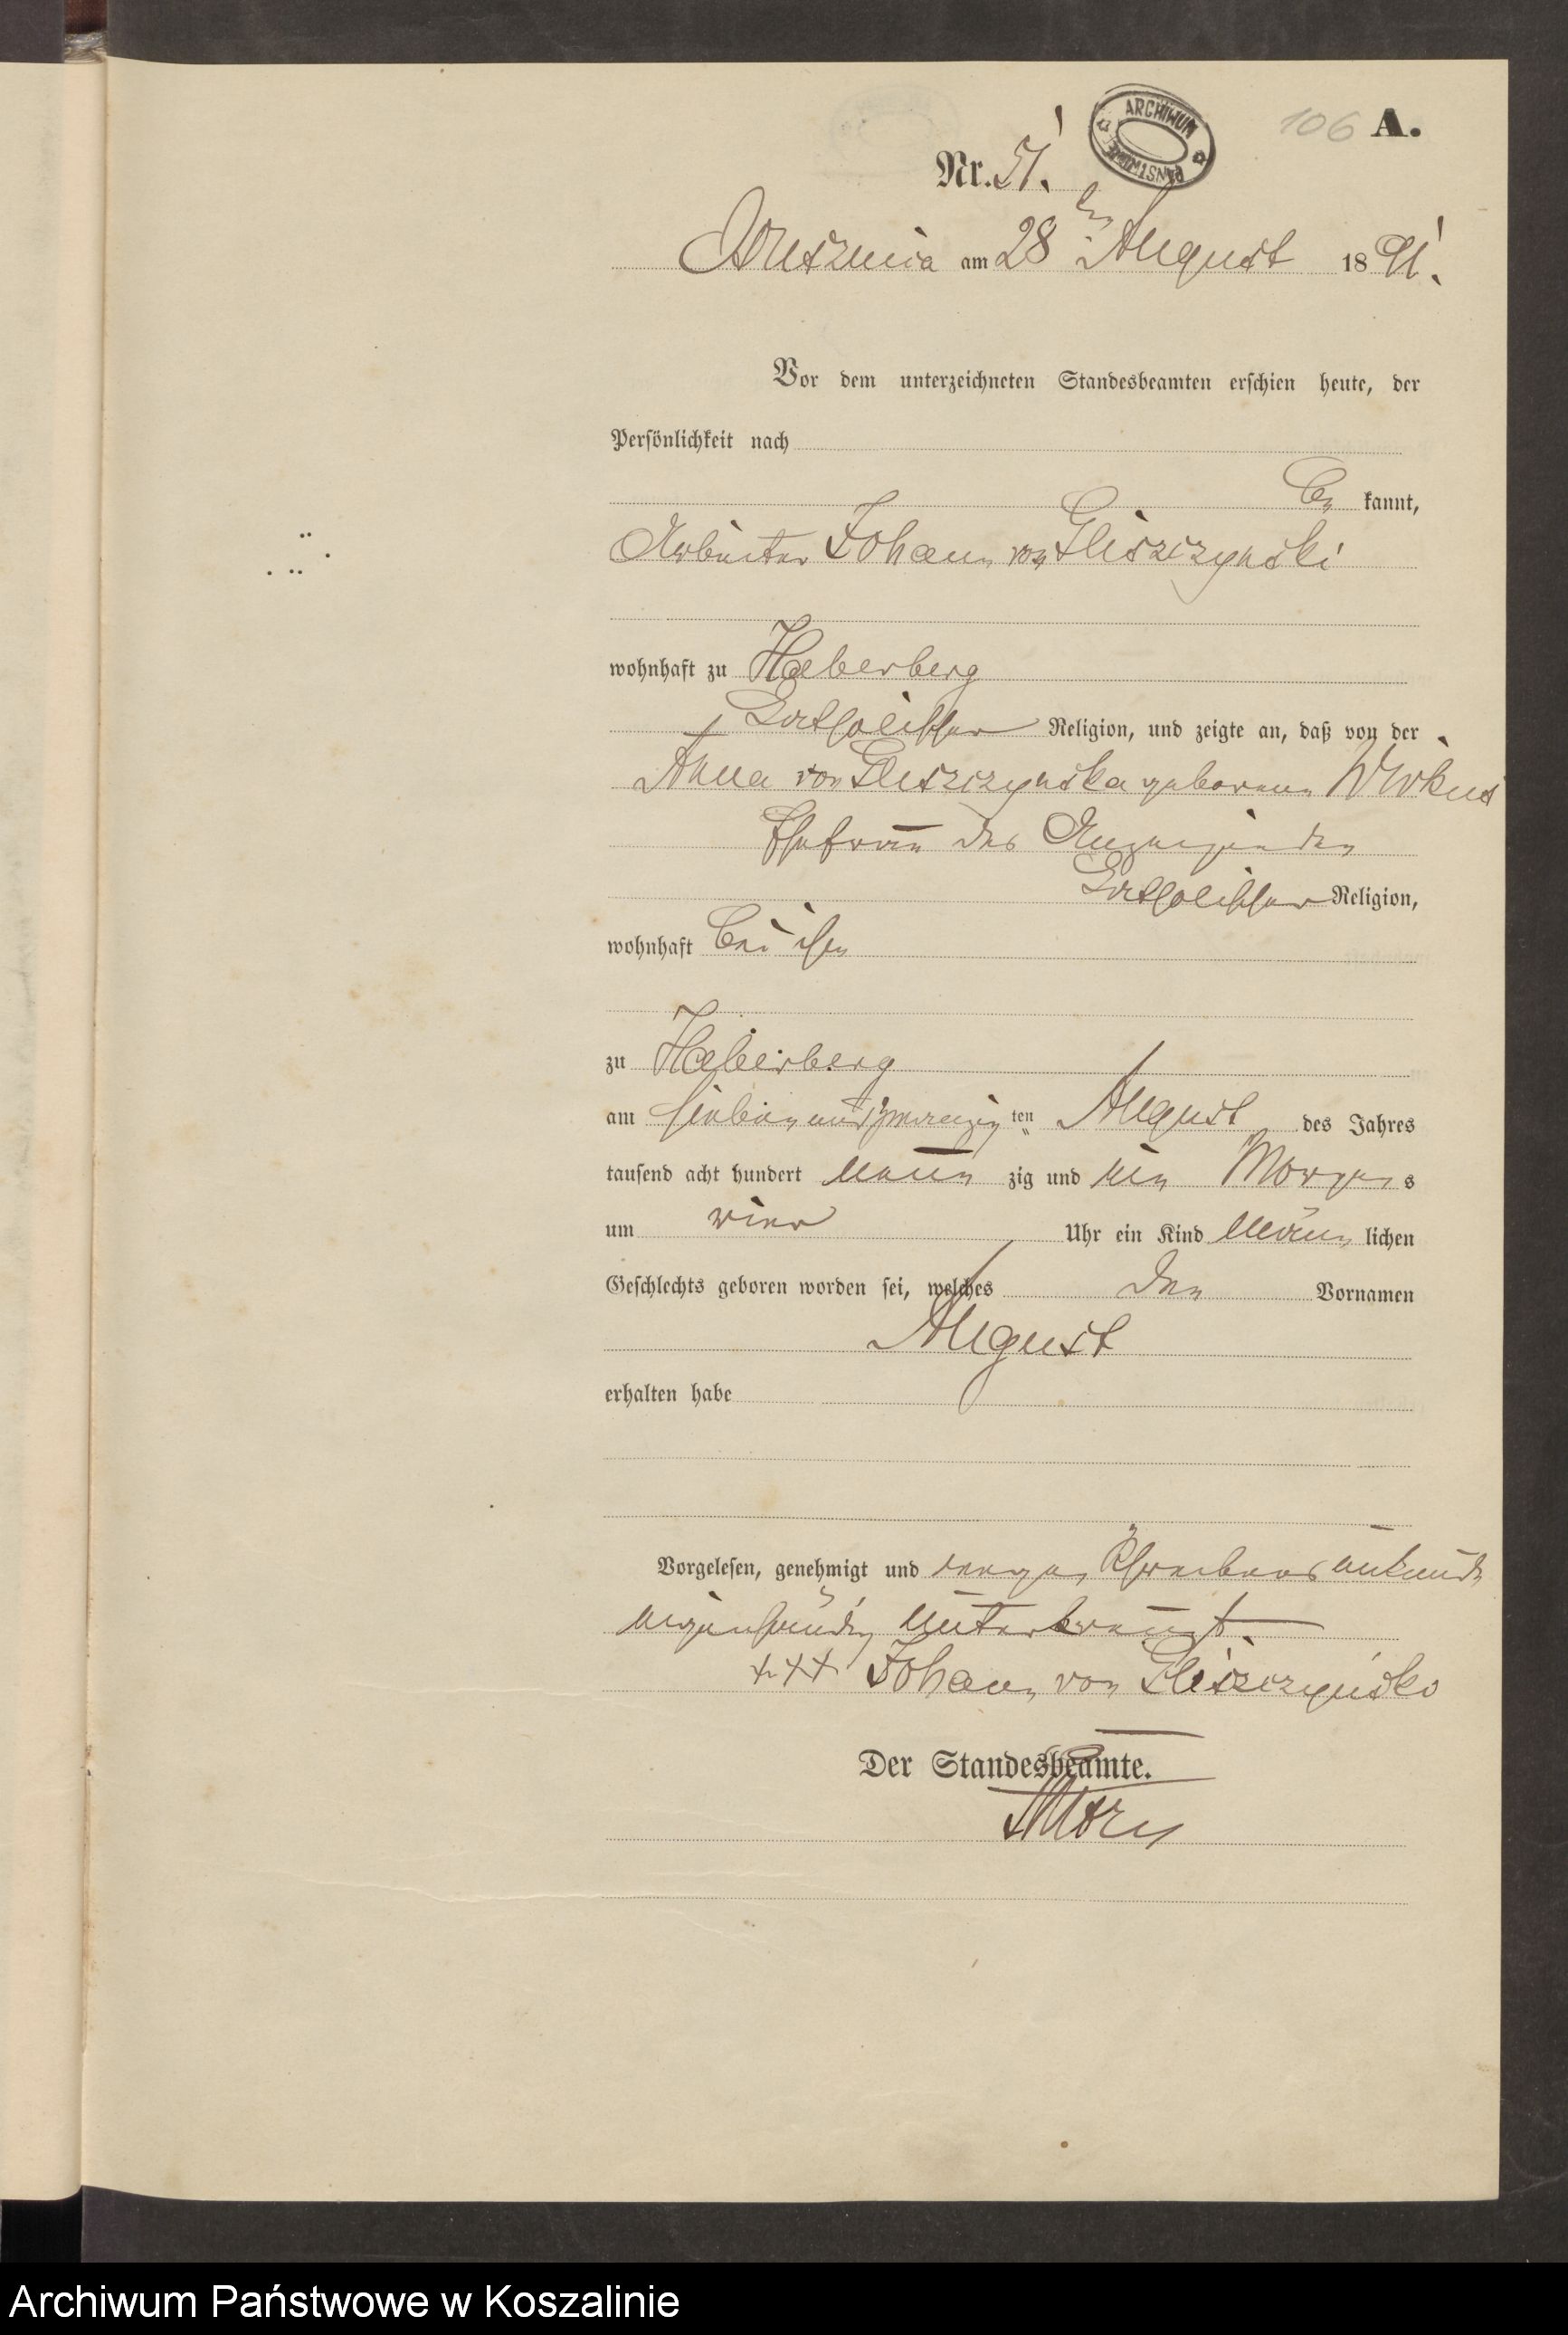 106 A.
ARCHIWUM PAŃSTWOWE
Nr. 51.
am 28ten August 1891.
Vor dem unterzeichneten Standesbeamten erschien heute, der
Persönlichkeit nach
be kannt,
Arbeiter Johann von Gliszczynski
wohnhaft zu Haberberg
katholischer Religion, und zeigte an, daß von der
Anna von Gliszczynska geborene Wirkus
Ehefrau des Anzeigenden
katholischer Religion,
wohnhaft bei ihm
zu Haberberg
am sieben und zwanzig ten August des Jahres
tausend acht hundert neun zig und ein Morgens
um vier Uhr ein Kind männ lichen
Geschlechts geboren worden sei, welches den Vornamen
August
erhalten habe
Vorgelesen, genehmigt und wegen Schreibens unkunde
eigenhändig unterkreuzt.
+++ Johann von Gliszczynski
Der Standesbeamte.
Archiwum Państwowe w Koszalinie